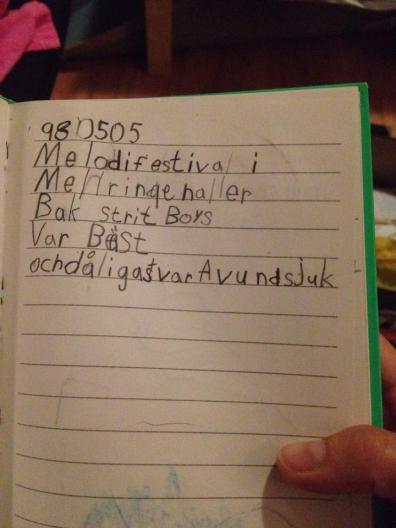 980505
Melodifestival i
Mellringehaller
Bak strit Boys
Var Bäst
ochdåligastvarAvundsjuk